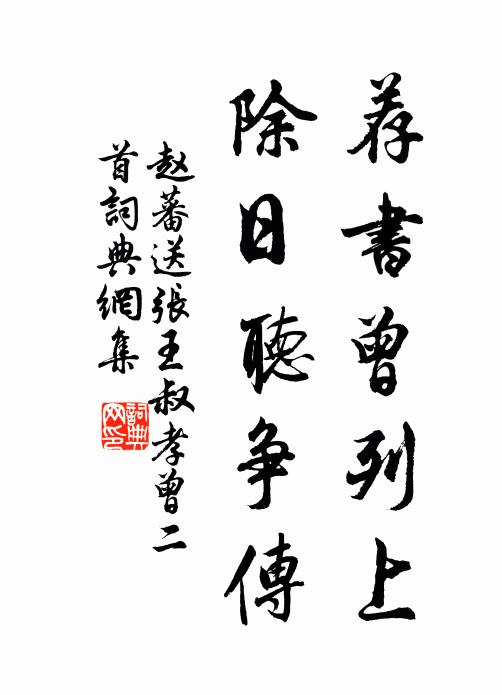 荐書曾列上
除日聽争傳
赵蕃送張王叔孝曾二
首詞典網集
詞典网印